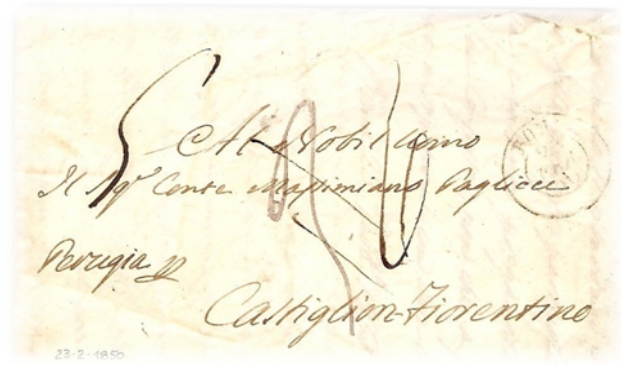 Al Nobil Uomo
Il Sigr Conte Massimiano Pagliacci
Perugia
Castiglion-Fiorentino
23-2-1850